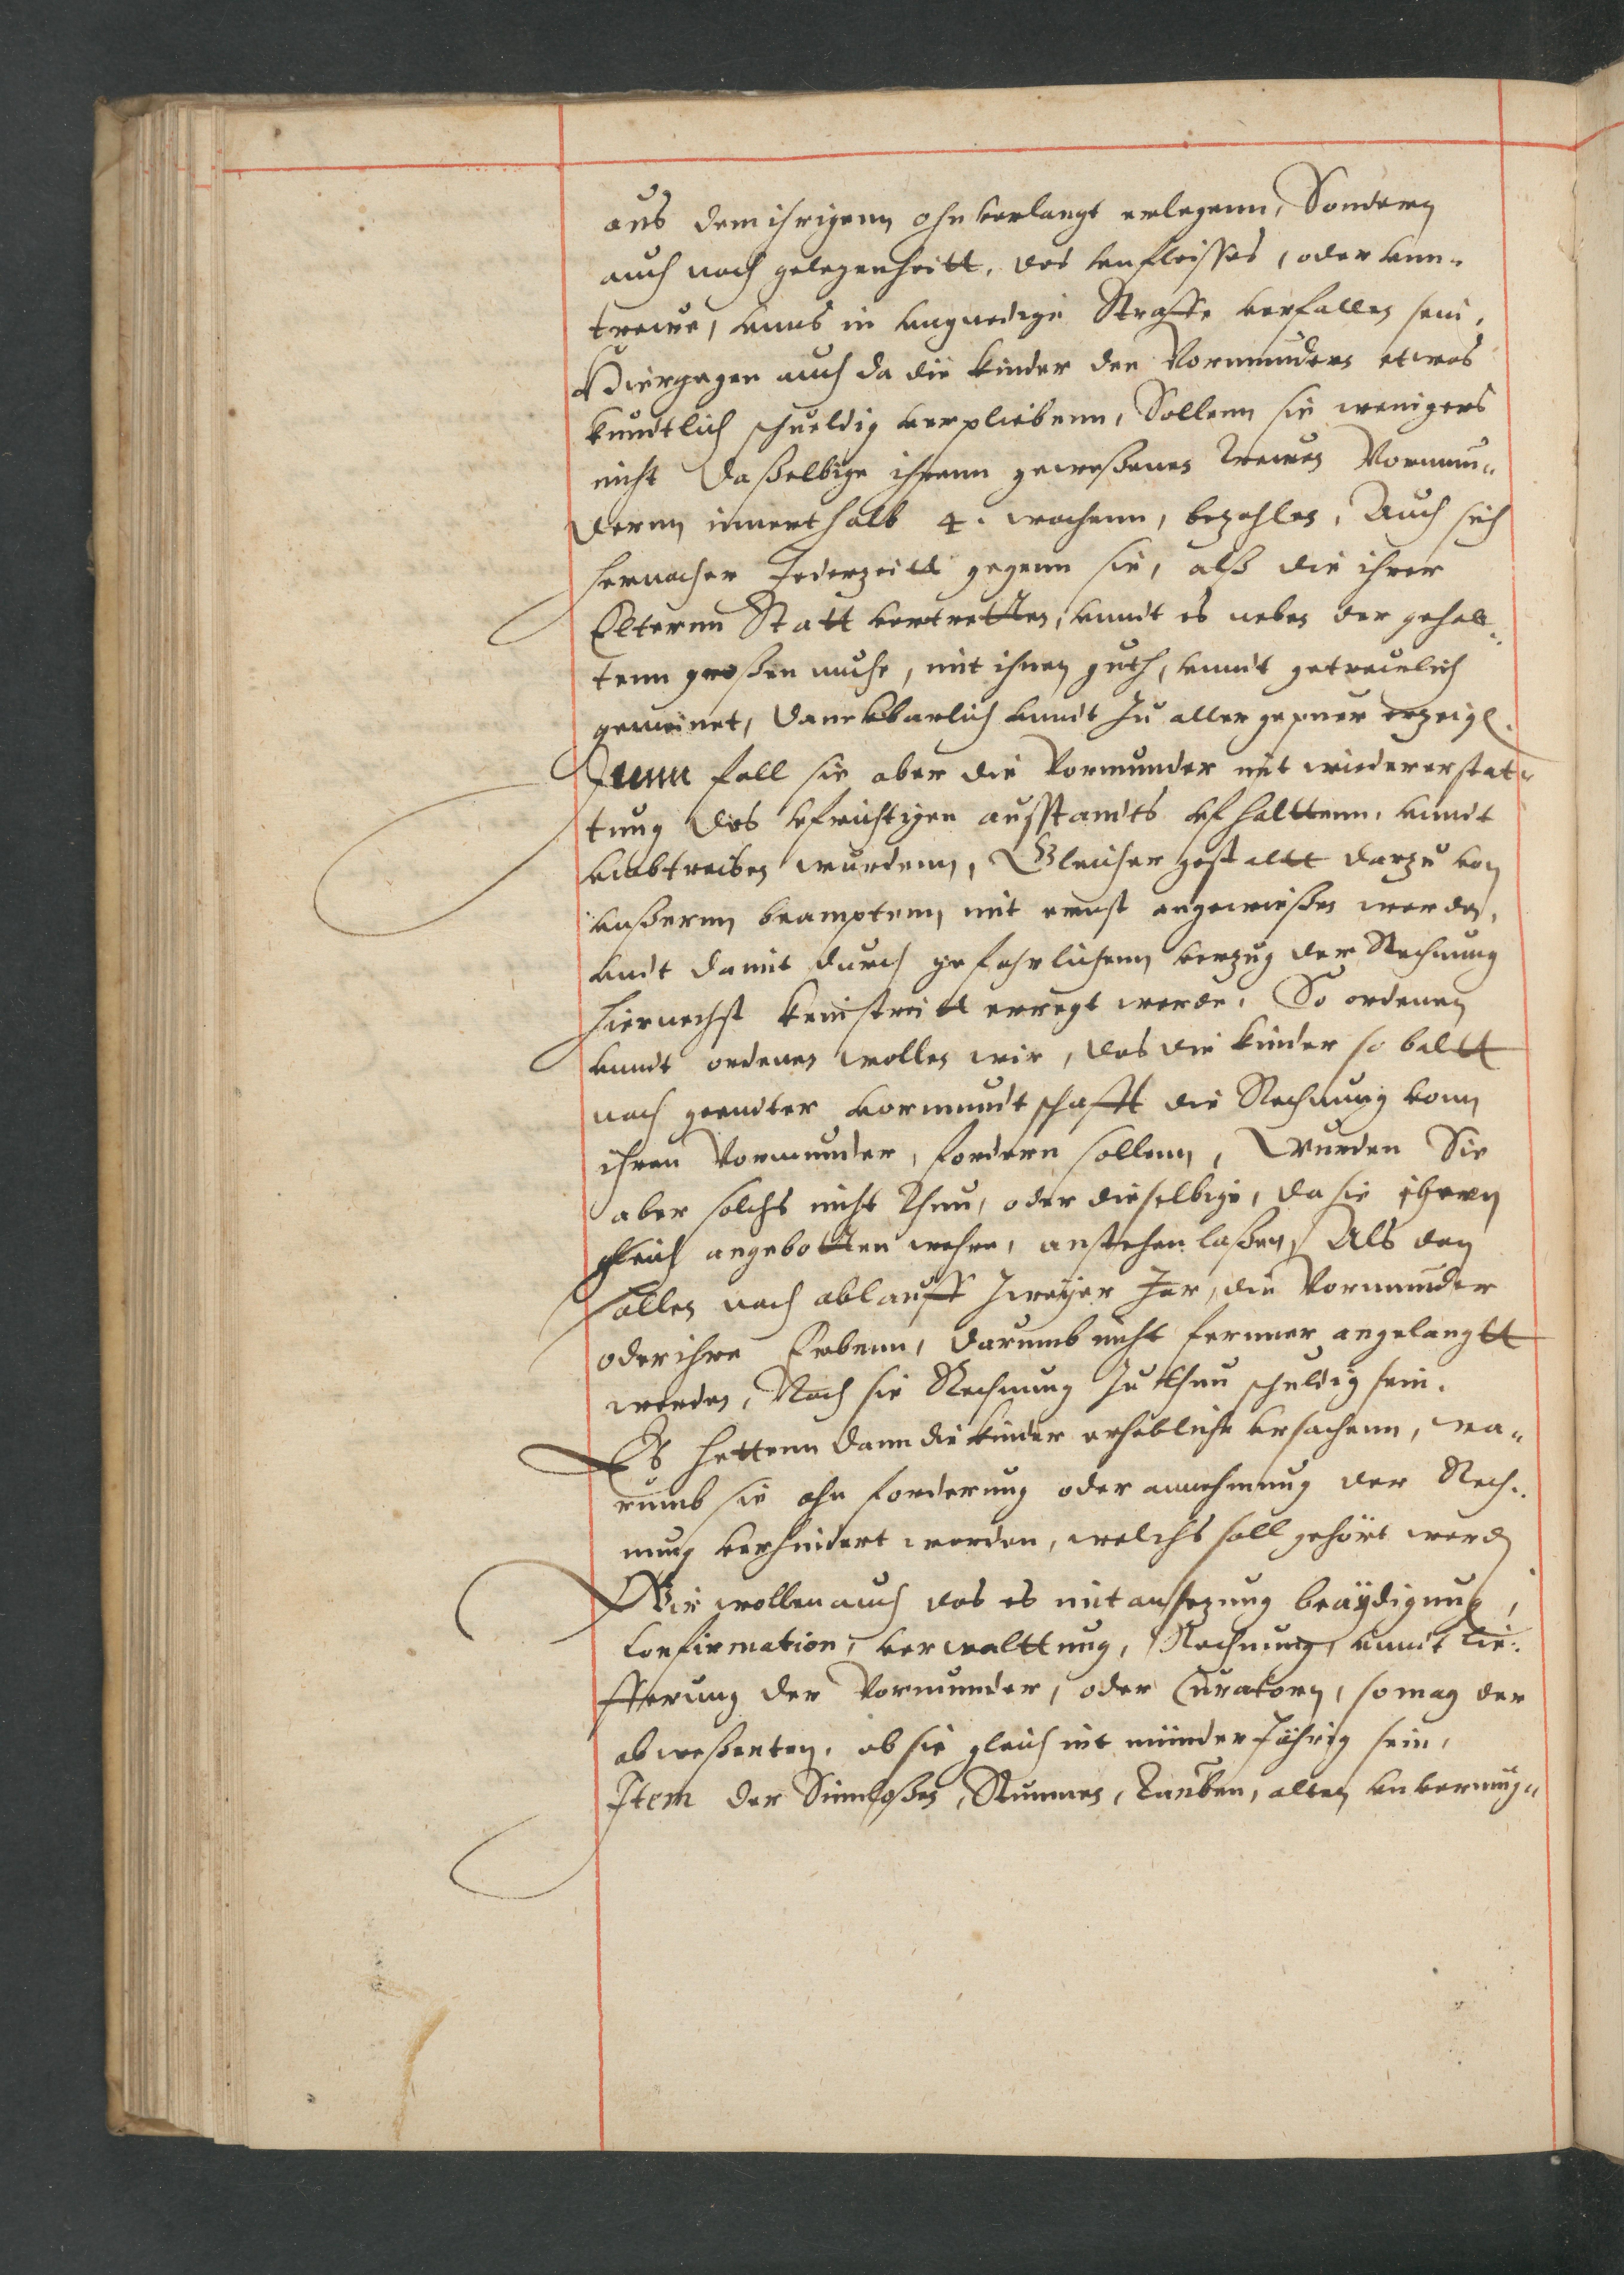 aus dem ihrigenn ohnverlangt erlegenn, Sondern
auch nach gelegenheitt, des vnfleisses, oder vnn-
trewe, vnns in vngnedige Straffe verfallen sein,
Hiergegen auch da die kinder den Vormundern etwas
kundtlich schueldig verpliebenn, Sollenn sie wenigers
nicht daßelbige ihrenn geweßenen trewen Vormun-
dernn innerthalb 4. wochenn, bezahlen, Auch sich
hernacher Jederzeitt gegenn sie, alß die ihrer
Elternn Statt vertretten, vnndt es neben der gehab-
tenn großen muhe, mit ihnen guth, vnndt getreulich
gemeinet, danckbarlich vnndt zu aller gepuer erzeigen.
Jmm fall sie aber die Vormunder mit wiedererstat-
tung des vfrichtigen ausstandts vfhalttenn, vnndt
vmbtreiben wurdenn, Gleicher gestalltt darzu von
vnßernn beamptenn, mit ernst angewießen werden,
vndt damit durch gefehrlichenn verzug der Rechnung
hiernechst kein streitt erregt werde, So ordenen
vnndt ordenen wollen wir, das die kinder so baltt
nach geendter vormundtschafft die Rechnung vonn
ihren Vormunder, fordern sollenn, Wurden Sie
aber solchs nicht thun, oder dieselbige, da sie ihnen
gleich angebotten wehre, anstehen laßen, Als dan
sollen nach ablauff zweyer Jar, die Vormunder
oder ihre Erbenn, darumb nicht ferner angelangtt
werden, Noch sie Rechnung zu thun schuldig sein.
Es hettenn dann die kinder erhebliche vrsachenn, wa-
rumb sie ahn forderung oder annehmung der Rech-
nung verhindert worden, welchs soll gehört werden
Wir wollen auch das es mit ansezung beäydigung,
Confirmation, verwalttung, Rechnung, vnndt lie-
fferung der Vormunder, oder Curatorn, so mag der
abweßenten, ob sie gleich nit minder Jährig sein,
Item der Sinnloßen, Stummen, Tauben, alten vnvermug-